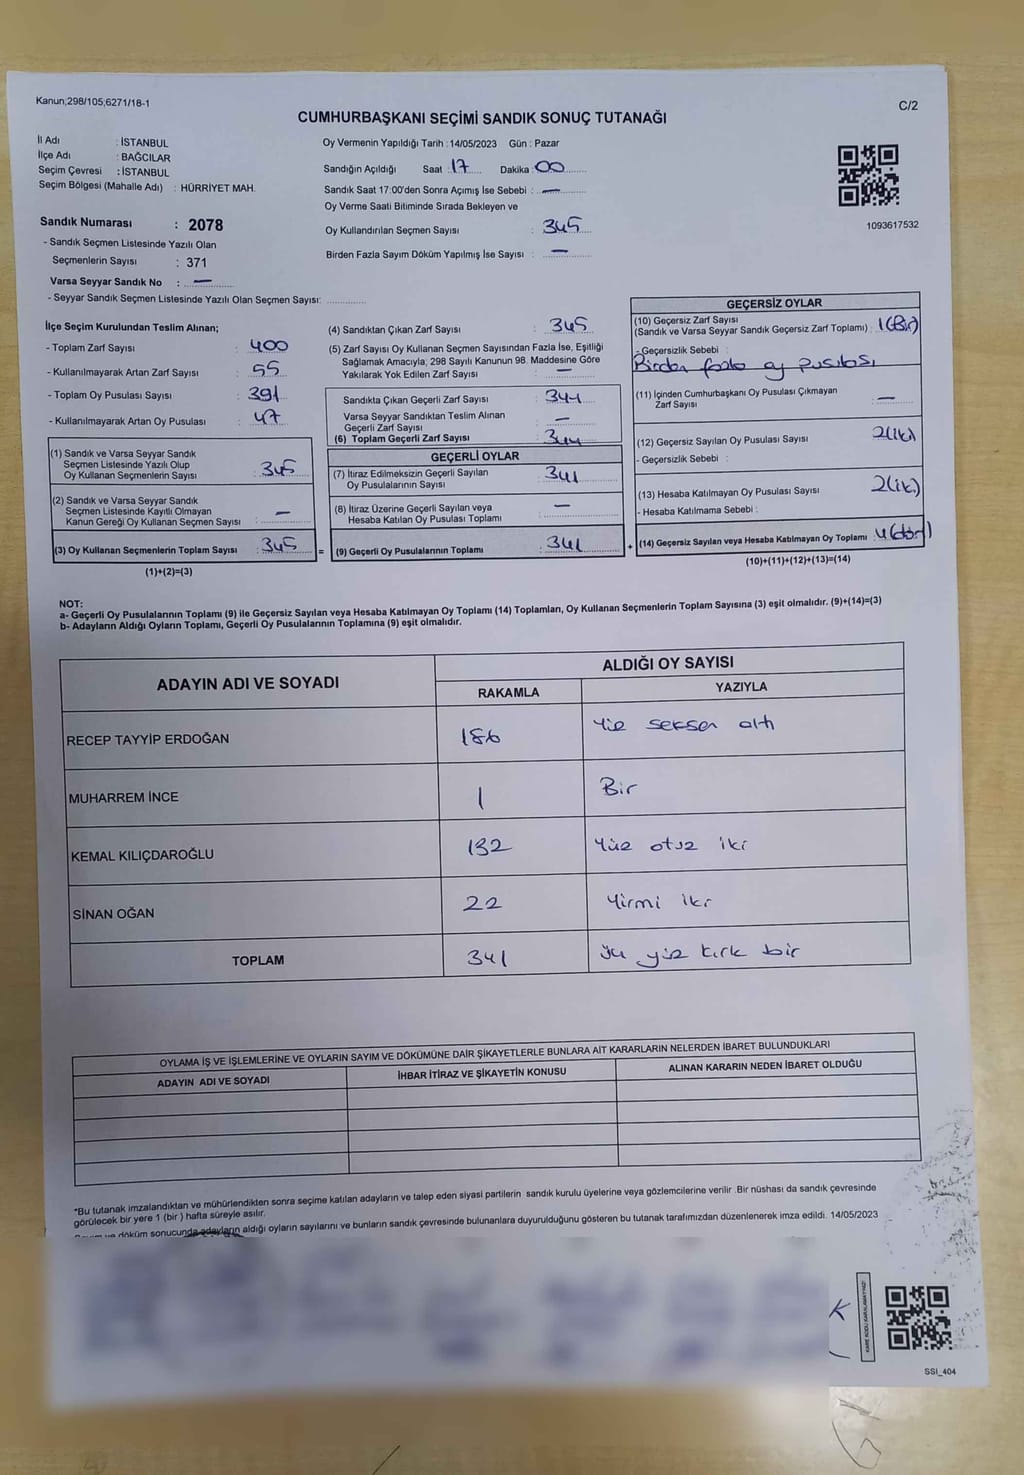 Kanun;298/105;6271/18-1
C/2
CUMHURBAŞKANI SEÇİMİ SANDIK SONUÇ TUTANAĞI
İl Adı : İSTANBUL
İlçe Adı : BAĞCILAR
Seçim Çevresi : İSTANBUL
Seçim Bölgesi (Mahalle Adı) : HÜRRİYET MAH.
Sandık Numarası : 2078
- Sandık Seçmen Listesinde Yazılı Olan
Seçmenlerin Sayısı : 371
Varsa Seyyar Sandık No : —
- Seyyar Sandık Seçmen Listesinde Yazılı Olan Seçmen Sayısı:
Oy Vermenin Yapıldığı Tarih : 14/05/2023 Gün : Pazar
Sandığın Açıldığı Saat : 17 Dakika : 00
Sandık Saat 17:00'den Sonra Açımış İse Sebebi : —
Oy Verme Saati Bitiminde Sırada Bekleyen ve
Oy Kullandırılan Seçmen Sayısı : 345
Birden Fazla Sayım Döküm Yapılmış İse Sayısı : —
1093617532
İlçe Seçim Kurulundan Teslim Alınan;
- Toplam Zarf Sayısı : 400
- Kullanılmayarak Artan Zarf Sayısı : 55
- Toplam Oy Pusulası Sayısı : 391
- Kullanılmayarak Artan Oy Pusulası : 47
(1) Sandık ve Varsa Seyyar Sandık
Seçmen Listesinde Yazılı Olup
Oy Kullanan Seçmenlerin Sayısı : 345
(2) Sandık ve Varsa Seyyar Sandık
Seçmen Listesinde Kayıtlı Olmayan
Kanun Gereği Oy Kullanan Seçmen Sayısı : —
(3) Oy Kullanan Seçmenlerin Toplam Sayısı : 345
(1)+(2)=(3)
(4) Sandıktan Çıkan Zarf Sayısı : 345
(5) Zarf Sayısı Oy Kullanan Seçmen Sayısından Fazla İse, Eşitliği
Sağlamak Amacıyla, 298 Sayılı Kanunun 98. Maddesine Göre
Yakılarak Yok Edilen Zarf Sayısı : —
Sandıkta Çıkan Geçerli Zarf Sayısı : 344
Varsa Seyyar Sandıktan Teslim Alınan
Geçerli Zarf Sayısı : —
(6) Toplam Geçerli Zarf Sayısı : 344
GEÇERLİ OYLAR
(7) İtiraz Edilmeksizin Geçerli Sayılan
Oy Pusulalarının Sayısı : 341
(8) İtiraz Üzerine Geçerli Sayılan veya
Hesaba Katılan Oy Pusulası Toplamı : —
= (9) Geçerli Oy Pusulalarının Toplamı : 341
GEÇERSİZ OYLAR
(10) Geçersiz Zarf Sayısı
(Sandık ve Varsa Seyyar Sandık Geçersiz Zarf Toplamı) : 1(Bir)
- Geçersizlik Sebebi :
Birden fazla oy pusulası
(11) İçinden Cumhurbaşkanı Oy Pusulası Çıkmayan
Zarf Sayısı : —
(12) Geçersiz Sayılan Oy Pusulası Sayısı : 2(iki)
- Geçersizlik Sebebi :
(13) Hesaba Katılmayan Oy Pusulası Sayısı : 2(iki)
- Hesaba Katılmama Sebebi :
+ (14) Geçersiz Sayılan veya Hesaba Katılmayan Oy Toplamı : 4(dört)
(10)+(11)+(12)+(13)=(14)
NOT:
a- Geçerli Oy Pusulalarının Toplamı (9) ile Geçersiz Sayılan veya Hesaba Katılmayan Oy Toplamı (14) Toplamları, Oy Kullanan Seçmenlerin Toplam Sayısına (3) eşit olmalıdır. (9)+(14)=(3)
b- Adayların Aldığı Oyların Toplamı, Geçerli Oy Pusulalarının Toplamına (9) eşit olmalıdır.
ADAYIN ADI VE SOYADI
ALDIĞI OY SAYISI
RAKAMLA YAZIYLA
RECEP TAYYİP ERDOĞAN 186 Yüz seksen altı
MUHARREM İNCE 1 Bir
KEMAL KILIÇDAROĞLU 132 Yüz otuz iki
SİNAN OĞAN 22 Yirmi iki
TOPLAM 341 Üç yüz kırk bir
OYLAMA İŞ VE İŞLEMLERİNE VE OYLARIN SAYIM VE DÖKÜMÜNE DAİR ŞİKAYETLERLE BUNLARA AİT KARARLARIN NELERDEN İBARET BULUNDUKLARI
ADAYIN ADI VE SOYADI İHBAR İTİRAZ VE ŞİKAYETİN KONUSU ALINAN KARARIN NEDEN İBARET OLDUĞU
*Bu tutanak imzalandıktan ve mühürlendikten sonra seçime katılan adayların ve talep eden siyasi partilerin sandık kurulu üyelerine veya gözlemcilerine verilir .Bir nüshası da sandık çevresinde
görülecek bir yere 1 (bir ) hafta süreyle asılır.
ve döküm sonucunda adayların aldığı oyların sayılarını ve bunların sandık çevresinde bulunanlara duyurulduğunu gösteren bu tutanak tarafımızdan düzenlenerek imza edildi. 14/05/2023
K
KARE KODU KARALAMAYINIZ!
SSI_404